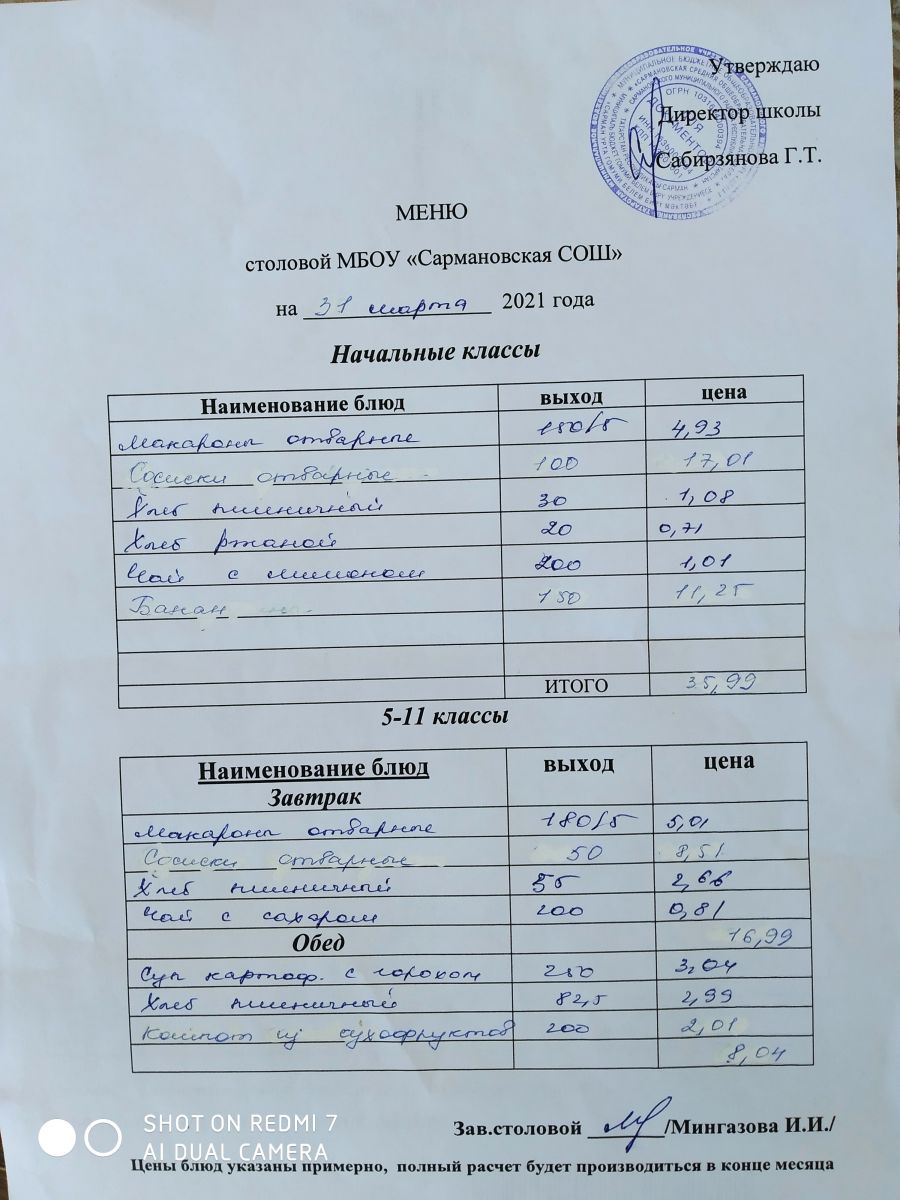 Утверждаю
Директор школы
Сабирзянова Г.Т.
ДЛЯ
ДОКУМЕНТОВ
МЕНЮ
столовой МБОУ «Сармановская СОШ»
на 31 марта 2021 года
Начальные классы
Наименование блюд выход цена
Макароны отварные 150/5 4,93
Сосиски отварные 100 17,01
Хлеб пшеничный 30 1,08
Хлеб ржаной 20 0,71
Чай с лимоном 200 1,01
Банан 150 11,25
ИТОГО 35,99
5-11 классы
Наименование блюд выход цена
Завтрак
Макароны отварные 180/5 5,01
Сосиски отварные 50 8,51
Хлеб пшеничный 55 2,66
Чай с сахаром 200 0,81
Обед 16,99
Суп картоф. с горохом 250 3,04
Хлеб пшеничный 82,5 2,99
Компот из сухофруктов 200 2,01
8,04
Зав.столовой /Мингазова И.И./
Цены блюд указаны примерно, полный расчет будет производиться в конце месяца
SHOT ON REDMI 7
AI DUAL CAMERA